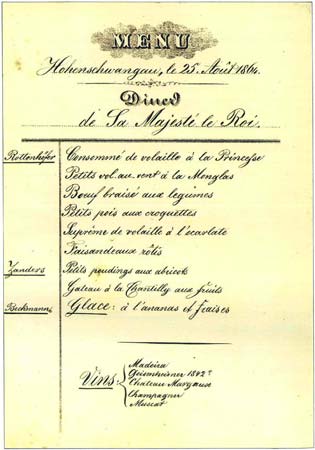 MENU
Hohenschwangau, le 25. Août 1864.
Diner
de Sa Majesté le Roi.
Rottenhöfer Consommé de volaille à la Princesse
Petits vol.au.vent à la Monglas
Bœuf braisé aux legumes
Petits pois aux croquettes
Suprême de volaille à l'écarlate
Faisandeaux rôtis
Zanders Petits poudings aux abricots
Gateau à la Chantilly aux fruits
Beckmann Glace: à l'ananas et fraises
Vins:
Madeira
Geisenheimer 1842
Chateau Margaux
Champagner
Muscat